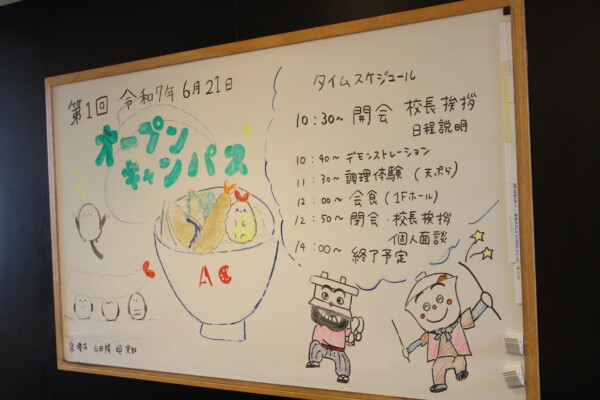 第1回 令和7年6月21日
オープン
キャンパス
AC
タイムスケジュール
10:30~ 開会 校長挨拶
日程説明
10:40~ デモンストレーション
11:30~ 調理体験 (天ぷら)
12:00~ 会食 (1Fホール)
12:50~ 閉会・校長挨拶
個人面談
14:00~ 終了予定